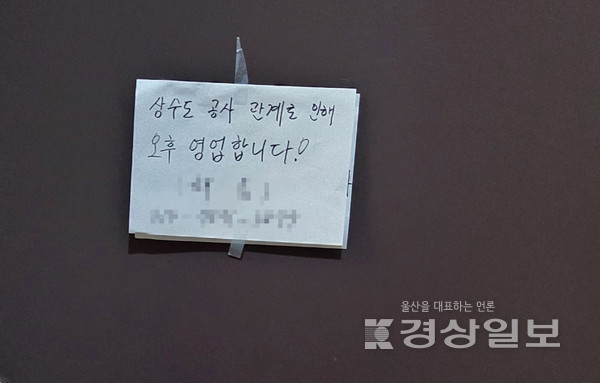 상수도 공사 관계로 인해
오후 영업합니다!
울산을 대표하는 언론
경상일보